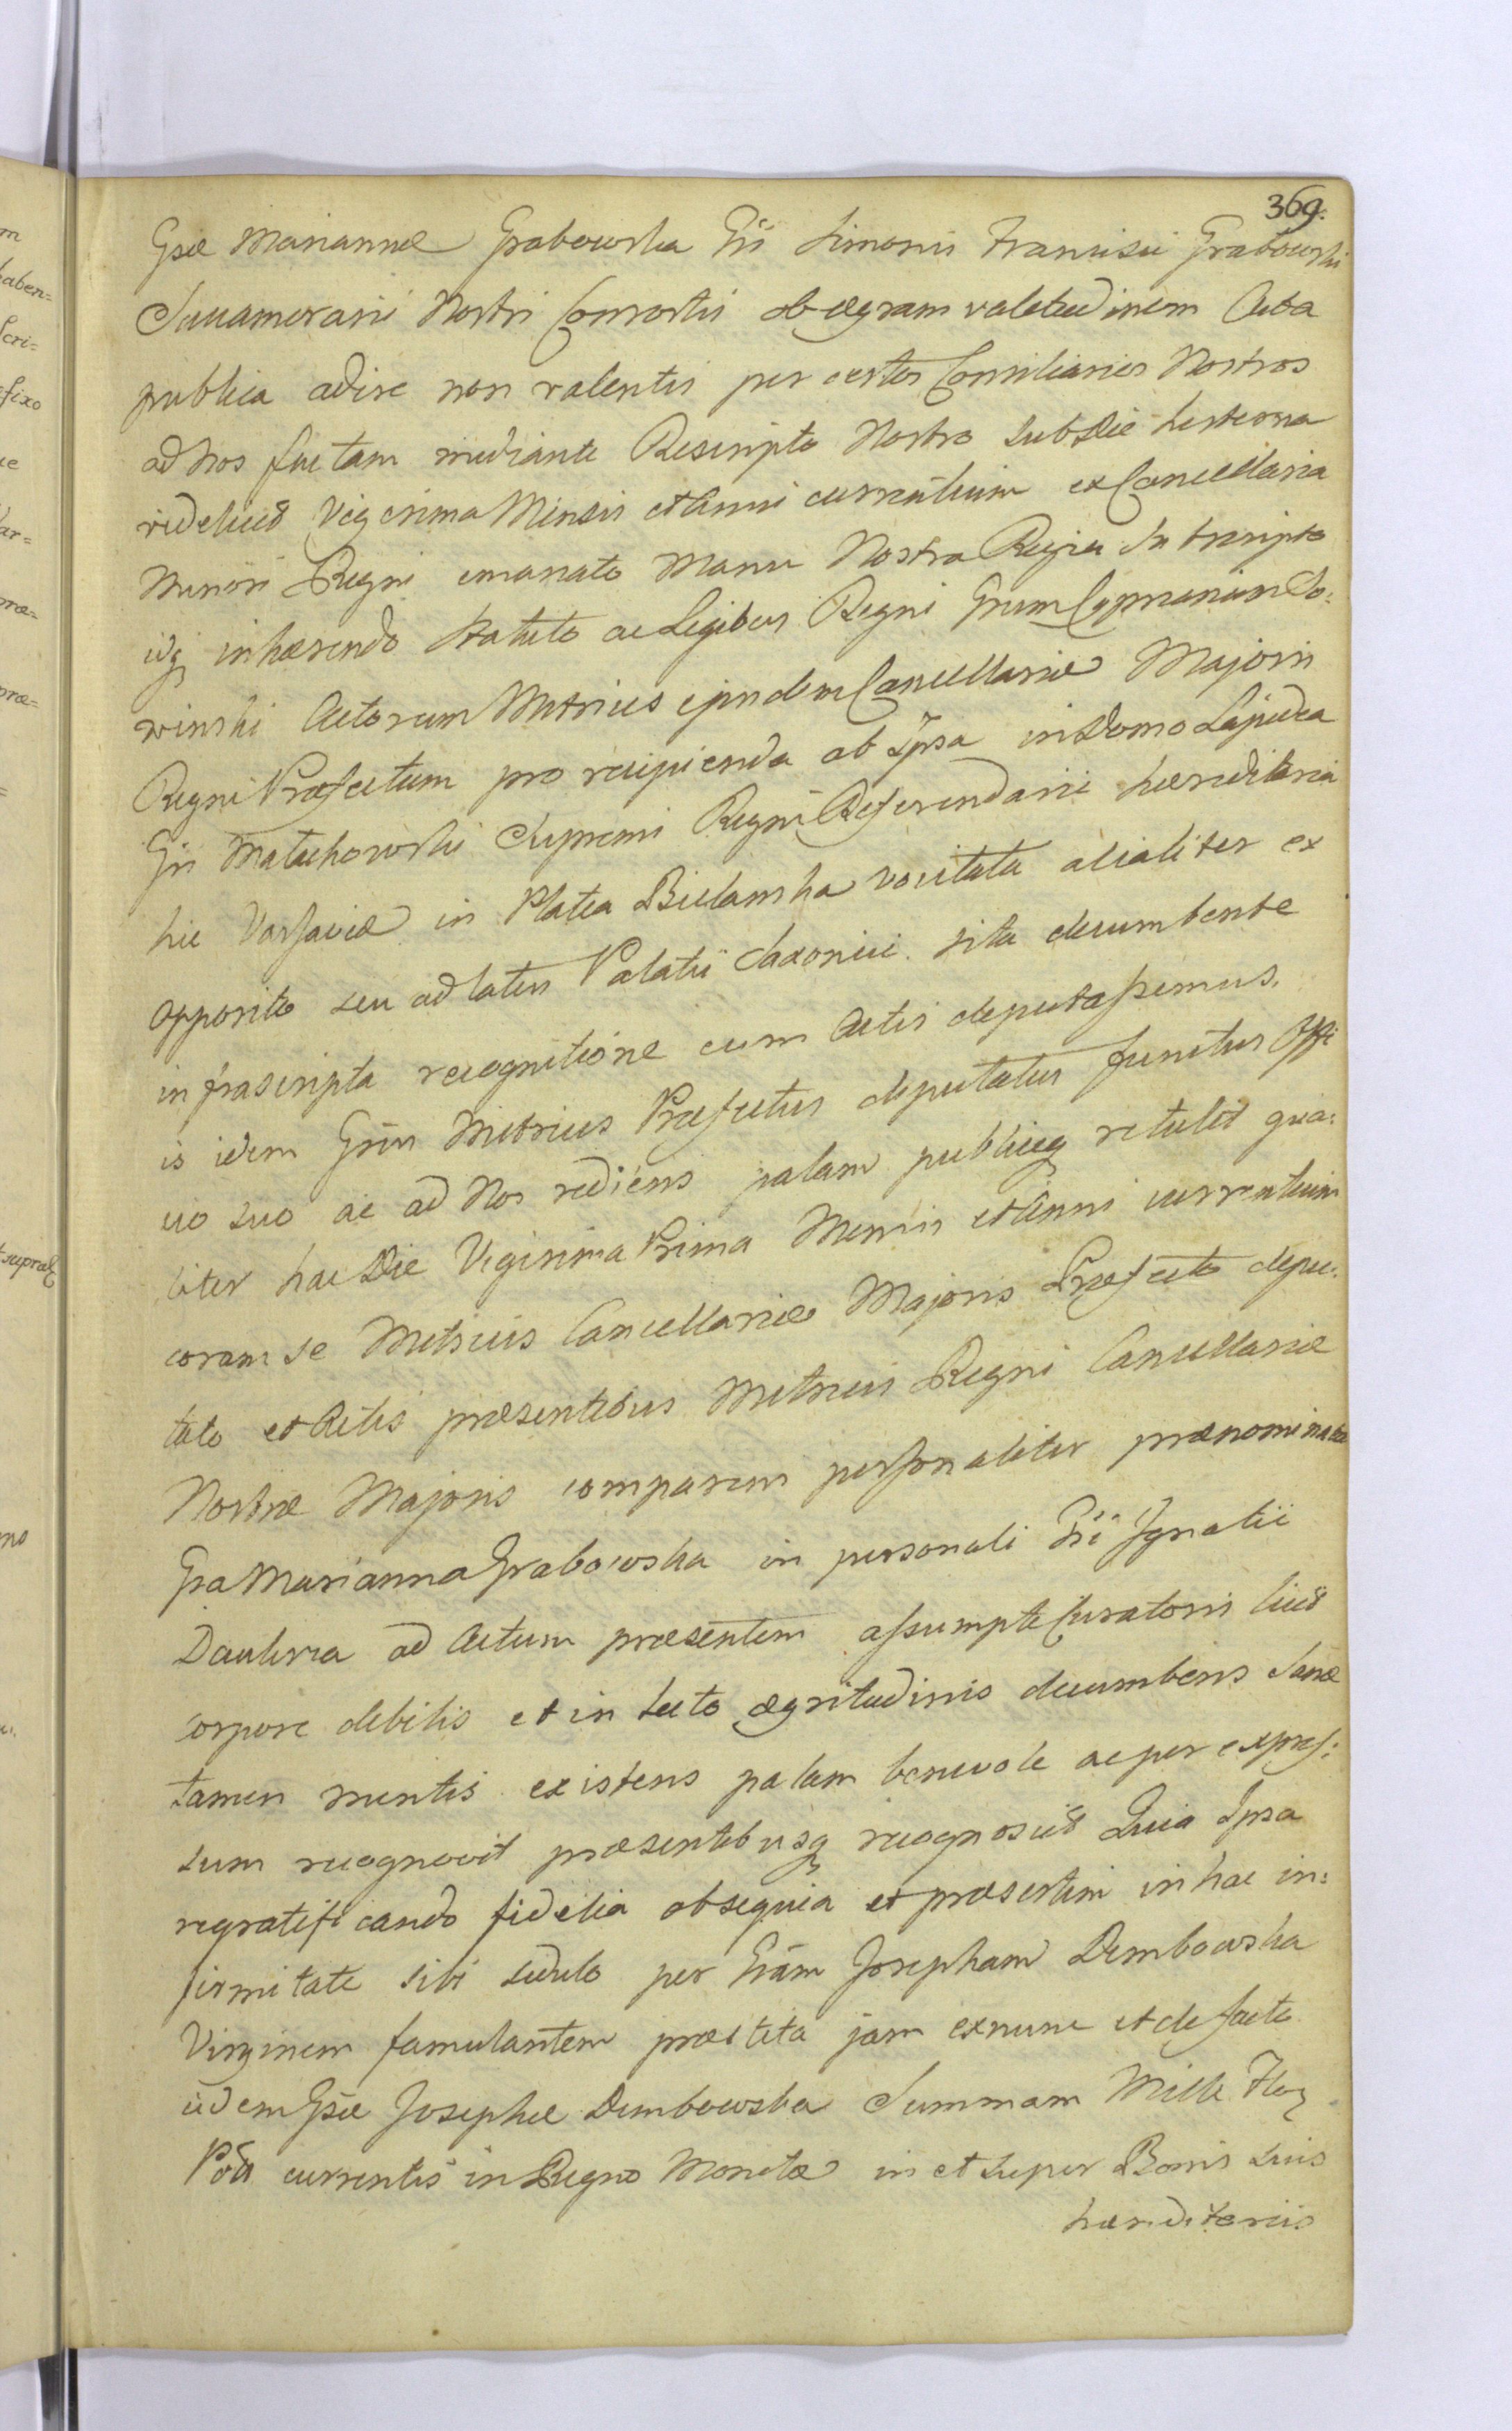 369.
Gsæ Mariannæ Grabowska Gsi Simonis Francisci Grabowski
Succamerarii Nostri Consortis ob ægram valetudinem Acta
publica adire non valentis per certos Consiliarios Nostros
ad Nos factam mediante Rescripto Nostro sub Die hesterna
videlicet Vigesima Mensis et Anni currentium ex Cancellaria
Minori Regni emanato Manu Nostra Regia subscripto
idq inhærendo Statuto ac Legibus Regni Grum Cyprianum So=
winski Actorum Metrices ejusdem Cancellariæ Majoris
Regni Præfectum pro recipienda ab Ipsa in Domo Lapidea
Gsi Małachowski Supremi Regni Referendarii hæreditaria
hic Varsaviæ in Platea Bielanska vocitata alialiter ex
opposito seu ad latus Palatii Saxonici sita decumbente
infrascripta recognitione cum Actis deputassemus.
is idem Gsus Metrices Præfectus deputatus functus Offi
cio suo ac ad Nos rediens palam publiceq retulit qua=
liter hac Die Vigesima Prima Mensis et Anni currentium
coram se Metrices Cancellariæ Majoris Præfecto depu=
tato et Actis præsentibus Metrices Regni Cancellariæ
Nostræ Majoris comparens personaliter prænominata
Gsa Marianna Grabowska in personali Gsi Ignatii
ad Actum præsentem assumpti Curatoris licet
corpore debilis et in lecto ægritudinis decumbens sanæ
tamen mentis existens palam benevole ac per expres=
sum recognovit præsentibusq recognoscit Quia Ipsa
regratificando fidelia obsequia et præsertim in hac in=
firmitate sibi sedulo per Gsam Josepham Dembowska
Virginem famulantem præstita jam exnunc et de facto
eidem Gsæ Josephæ Dembowska Summam Mille Flor
Pol currentis in Regno Monetæ in et super Bonis suis
hæreditariis